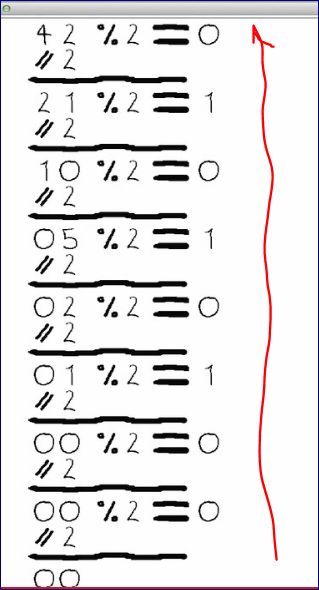 42 %2 = 0
// 2
21 %2 = 1
// 2
10 %2 = 0
// 2
05 %2 = 1
// 2
02 %2 = 0
// 2
01 %2 = 1
// 2
00 %2 = 0
// 2
00 %2 = 0
// 2
00